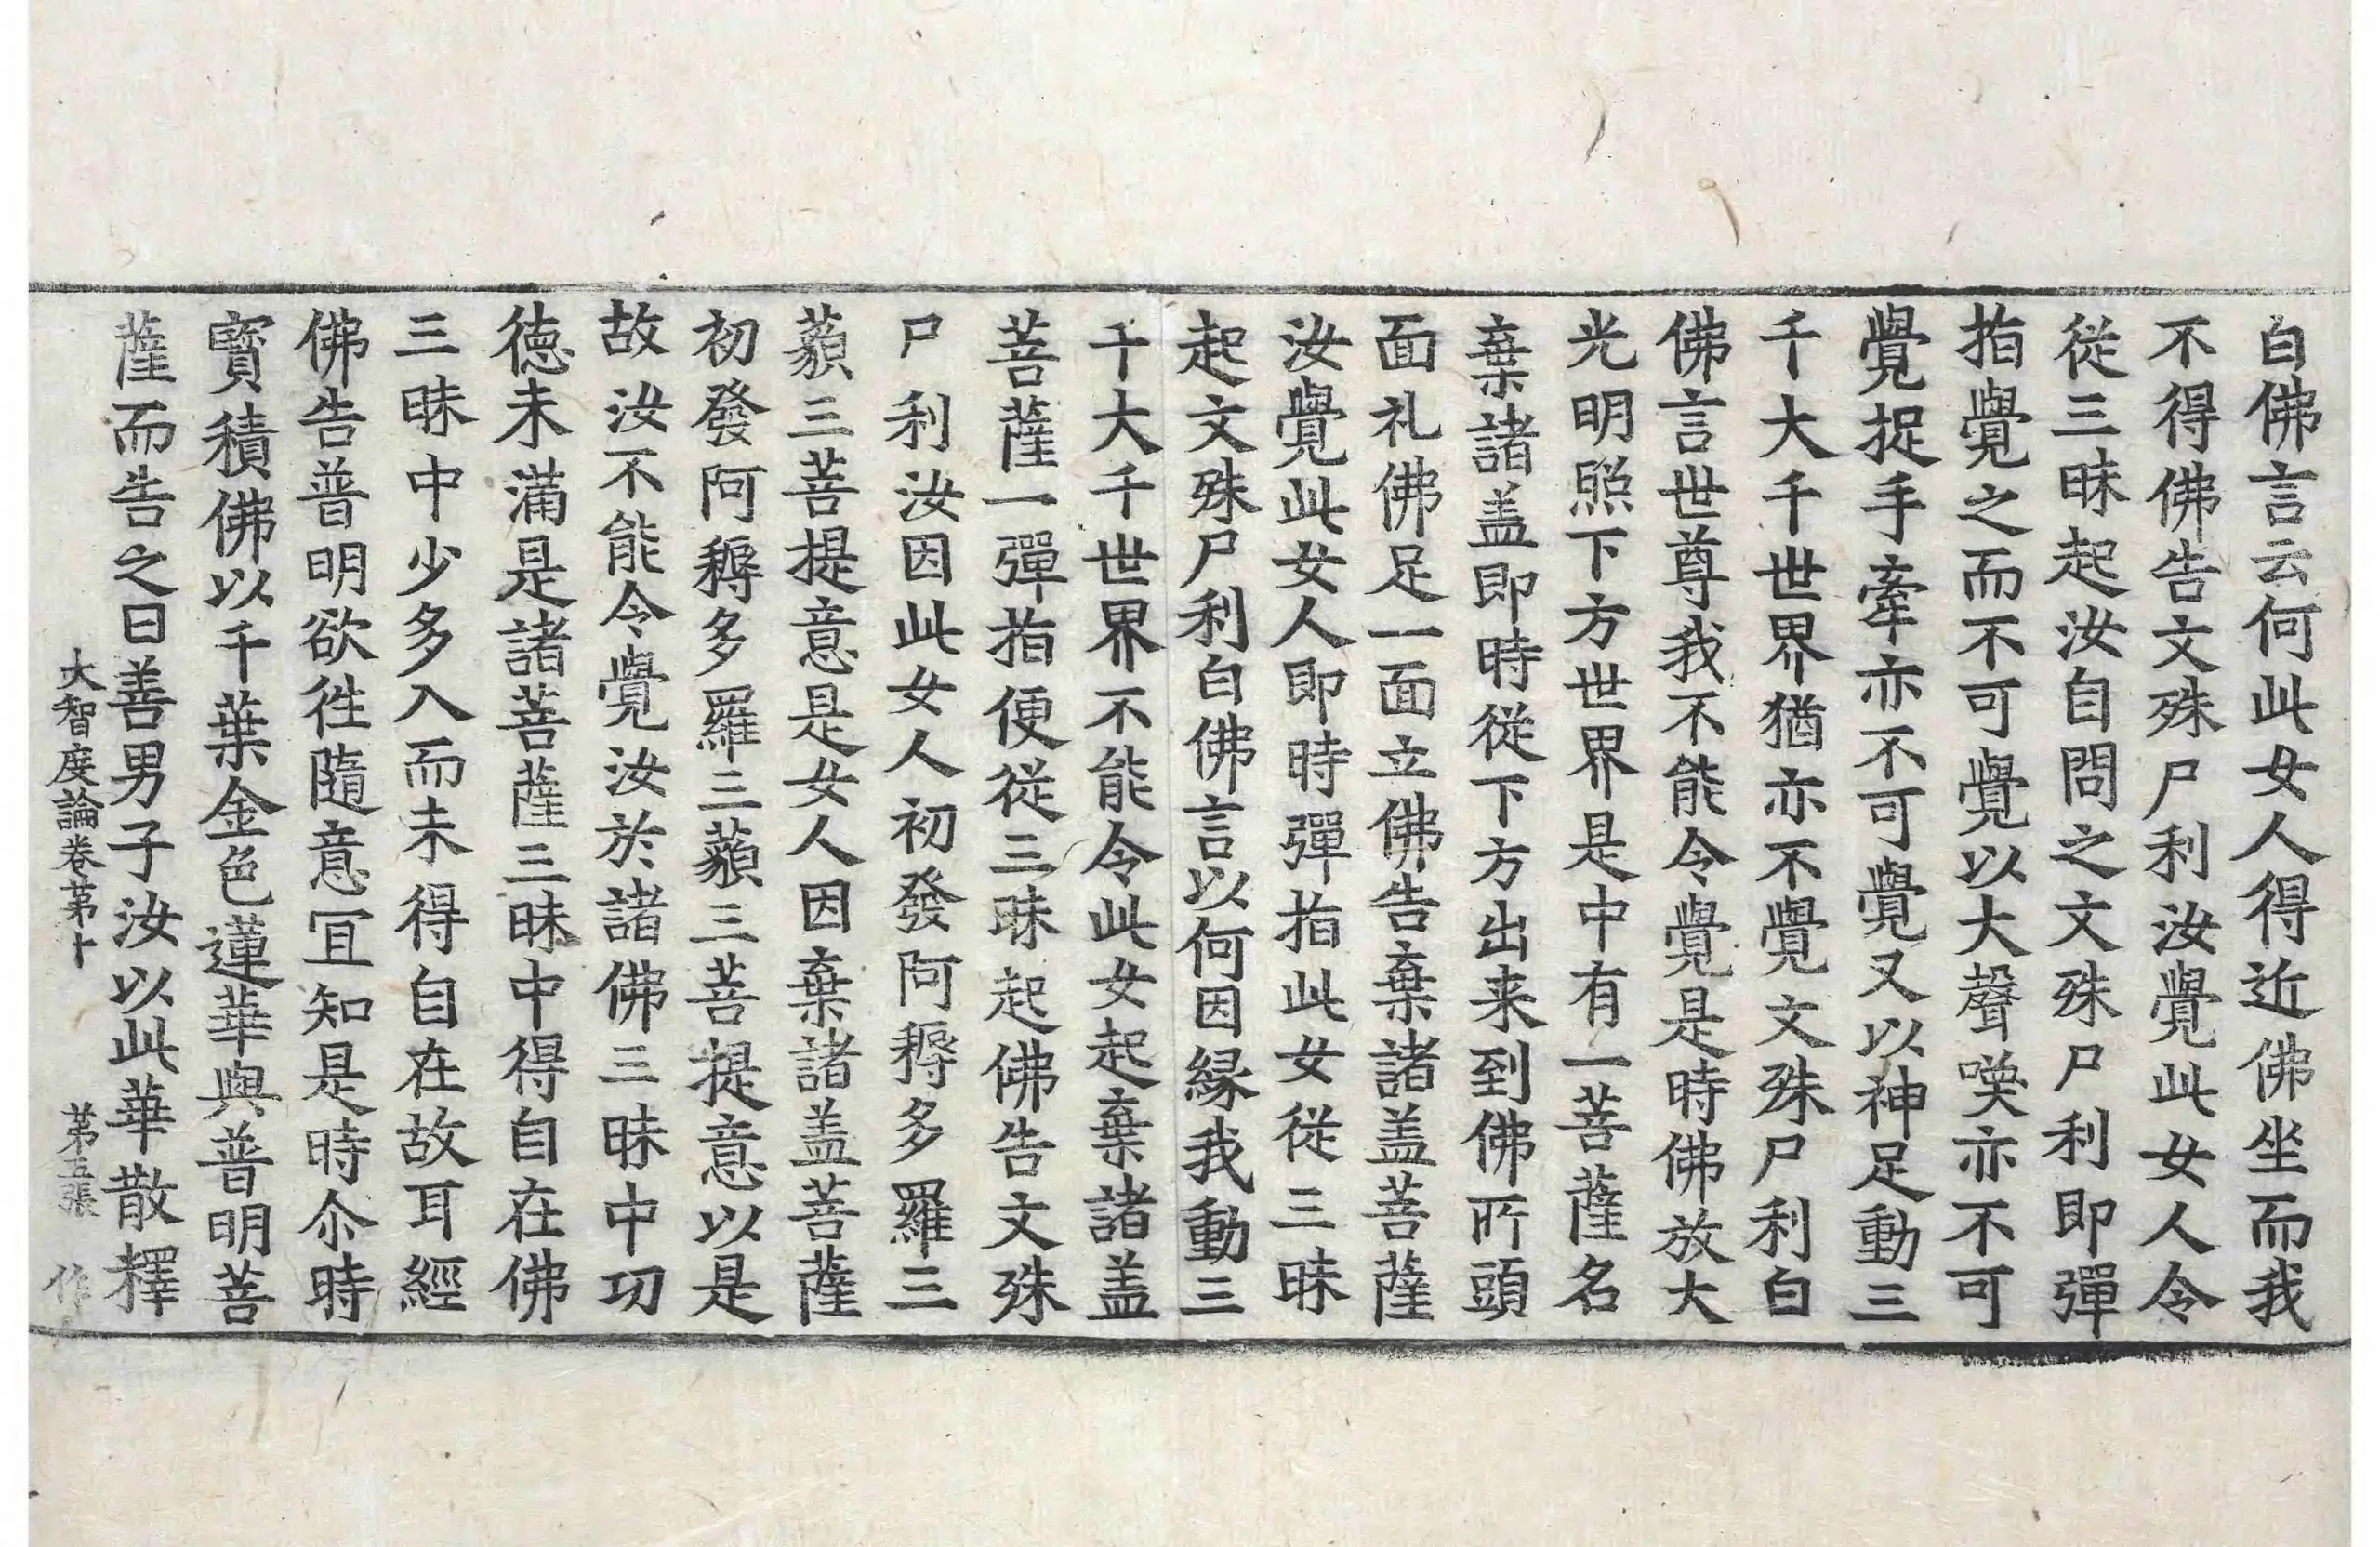 白佛言云何此女人得近佛坐而我
不得佛告文殊尸利汝覺此女人令
從三昧起汝自問之文殊尸利即彈
指覺之而不可覺以大聲喚亦不可
覺捉手牽亦不可覺又以神足動三
千大千世界猶亦不覺文殊尸利白
佛言世尊我不能令覺是時佛放大
光明照下方世界是中有一菩薩名
棄諸盖即時從下方出来到佛所頭
面礼佛足一面立佛告棄諸盖菩薩
汝覺此女人即時彈指此女從三昧
起文殊尸利白佛言以何因緣我動三
千大千世界不能令此女起棄諸盖
菩薩一彈指便從三昧起佛告文殊
尸利汝因此女人初發阿耨多羅三
藐三菩提意是女人因棄諸盖菩薩
初發阿耨多羅三藐三菩提意以是
故汝不能令覺汝於諸佛三昧中功
徳未滿是諸菩薩三昧中得自在佛
三昧中少多入而未得自在故耳經
佛告普明欲徃隨意冝知是時尒時
寳積佛以千葉金色蓮華與普明菩
薩而告之曰善男子汝以此華散釋
大智度論卷苐十 苐五張 作